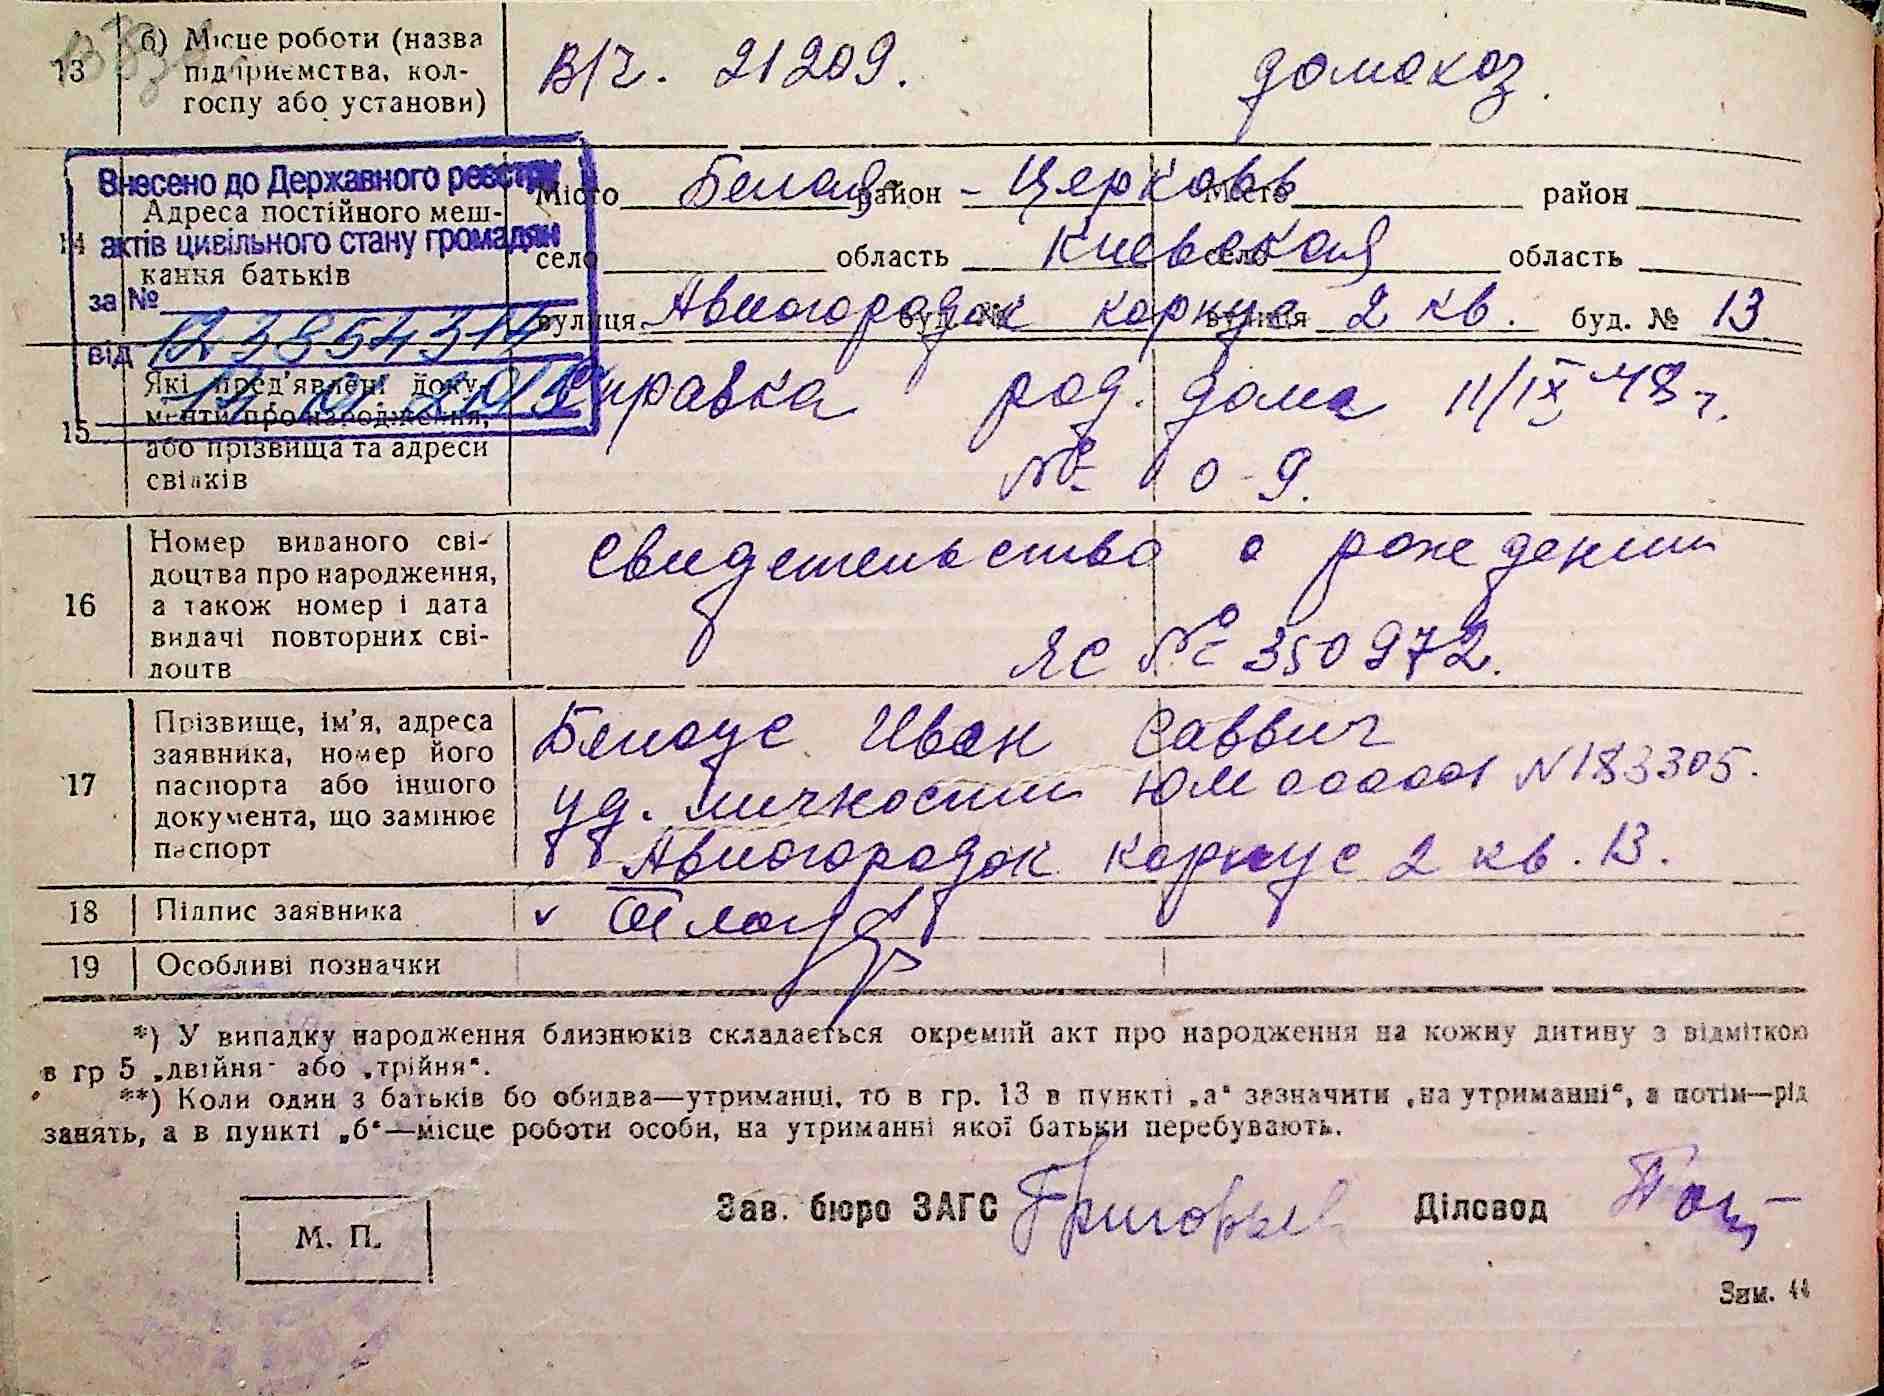 13 б) Місце роботи (назва підприємства, колгоспу або установи) В/ч. 21209. домохоз.
Внесено до Державного реєстру
актів цивільного стану громадян
за №
від
14 Адреса постійного мешкання батьків
Місто Белая район - Церковь Місто район
село область Киевская село область
вулиця Авиогородок буд. № корпус вулиця 2 кв. буд. № 13
15 Які пред'явлені документи про народження, або прізвища та адреси свідків
Справка род. дома 11/IX 48 г.
№ 10-9.
16 Номер виданого свідоцтва про народження, а також номер і дата видачі повторних свідоцтв
Свидетельство о рождении
ЯС № 350972.
17 Прізвище, ім'я, адреса заявника, номер його паспорта або іншого документа, що замінює паспорт
Белоус Иван Саввич
уд. личности ЮМ 00000 N 183305.
Авиогородок корпус 2 кв. 13.
18 Підпис заявника v
19 Особливі позначки
*) У випадку народження близнюків складається окремий акт про народження на кожну дитину з відміткою
в гр 5 „двійня" або „трійня".
**) Коли один з батьків бо обидва—утриманці, то в гр. 13 в пункті „а" зазначити „на утриманні", а потім—рід
занять, а в пункті „б"—місце роботи особи, на утриманні якої батьки перебувають.
Зав. бюро ЗАГС Григорьев Діловод
М. П.
Зам. 44